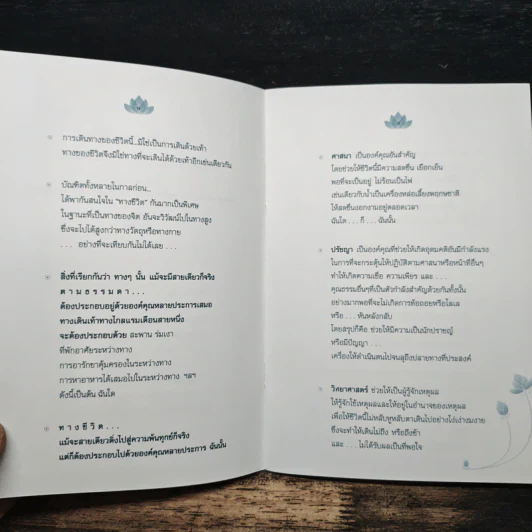 การเดินทางของชีวิตนี้...มิใช่เป็นการเดินด้วยเท้า
ทางของชีวิตจึงมิใช่ทางที่จะเดินได้ด้วยเท้าอีกเช่นเดียวกัน
บัณฑิตทั้งหลายในกาลก่อน...
ได้พากันสนใจใน "ทางชีวิต" กันมากเป็นพิเศษ
ในฐานะที่เป็นทางของจิต อันจะวิวัฒน์ไปในทางสูง
ซึ่งจะไปได้สูงกว่าทางวัตถุหรือทางกาย
. . . อย่างที่จะเทียบกันไม่ได้เลย . . .
สิ่งที่เรียกกันว่า ทางๆ นั้น แม้จะมีสายเดียวก็จริง
ต า ม ธ ร ร ม ด า . . .
ต้องประกอบอยู่ด้วยองค์คุณหลายประการเสมอ
ทางเดินเท้าทางไกลแรมเดือนสายหนึ่ง
จะต้องประกอบด้วย สะพาน ร่มเงา
ที่พักอาศัยระหว่างทาง
การอารักขาคุ้มครองในระหว่างทาง
การหาอาหารได้เสมอไปในระหว่างทาง ฯลฯ
ดังนี้เป็นต้น ฉันใด
ท า ง ชี วิ ต . . .
แม้จะสายเดียวดิ่งไปสู่ความพ้นทุกข์ก็จริง
แต่ก็ต้องประกอบไปด้วยองค์คุณหลายประการ ฉันนั้น
ศาสนา เป็นองค์คุณอันสำคัญ
โดยช่วยให้ชีวิตนี้มีความสดชื่น เยือกเย็น
พอที่จะเป็นอยู่ ไม่ร้อนเป็นไฟ
เช่นเดียวกับน้ำเป็นเครื่องหล่อเลี้ยงพฤกษชาติ
ให้สดชื่นงอกงามอยู่ตลอดเวลา
ฉันใด . . . ก็ . . . ฉันนั้น
ปรัชญา เป็นองค์คุณที่ช่วยให้เกิดอุดมคติอันมีกำลังแรง
ในการที่จะกระตุ้นให้ปฏิบัติตามศาสนาหรือหน้าที่อื่นๆ
ทำให้เกิดความเชื่อ ความเพียร และ . . .
คุณธรรมอื่นๆที่เป็นตัวกำลังสำคัญด้วยกันทั้งนั้น
อย่างมากพอที่จะไม่เกิดการท้อถอยหรือโลเล
หรือ . . . หันหลังกลับ
โดยสรุปก็คือ ช่วยให้มีความเป็นนักปราชญ์
หรือมีปัญญา . . .
เครื่องให้ดำเนินตนไปจนลุถึงปลายทางที่ประสงค์
วิทยาศาสตร์ ช่วยให้เป็นผู้รู้จักเหตุผล
ให้รู้จักใช้เหตุผลและให้อยู่ในอำนาจของเหตุผล
เพื่อให้ชีวิตนี้ไม่หลับหูหลับตาเดินไปอย่างโง่เง่างมงาย
ซึ่งจะทำให้เดินไม่ถึง หรือถึงช้า
และ . . . ไม่ได้รับผลเป็นที่พอใจ